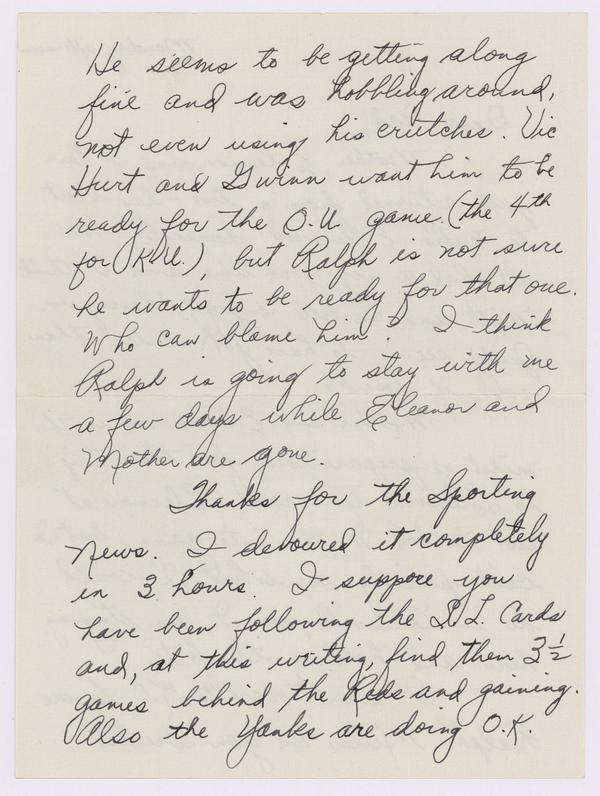 He seems to be getting along
fine and was hobbling around,
not even using his crutches. Vic
Hurt and Gwinn want him to be
ready for the O.U. game. (the 4th
for K.U.), but Ralph is not sure
he wants to be ready for that one.
Who can blame him? I think
Ralph is going to stay with me
a few days while Eleanor and
Mother are gone.
Thanks for the Sporting
News. I devoured it completely
in 3 hours. I suppose you
have been following the S.L. Cards
and, at this writing, find them 3½
games behind the Reds and gaining.
Also the Yanks are doing O.K.